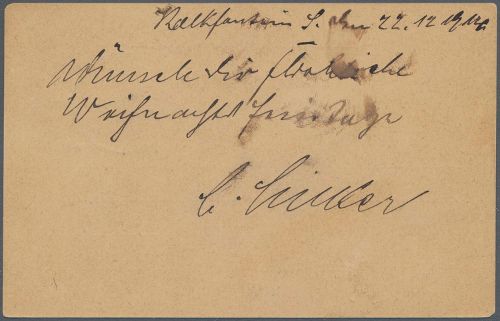 Kalkfontein S. den 22.12.19
Wünsche dir fröhliche
Weihnachtsfeiertage
C.